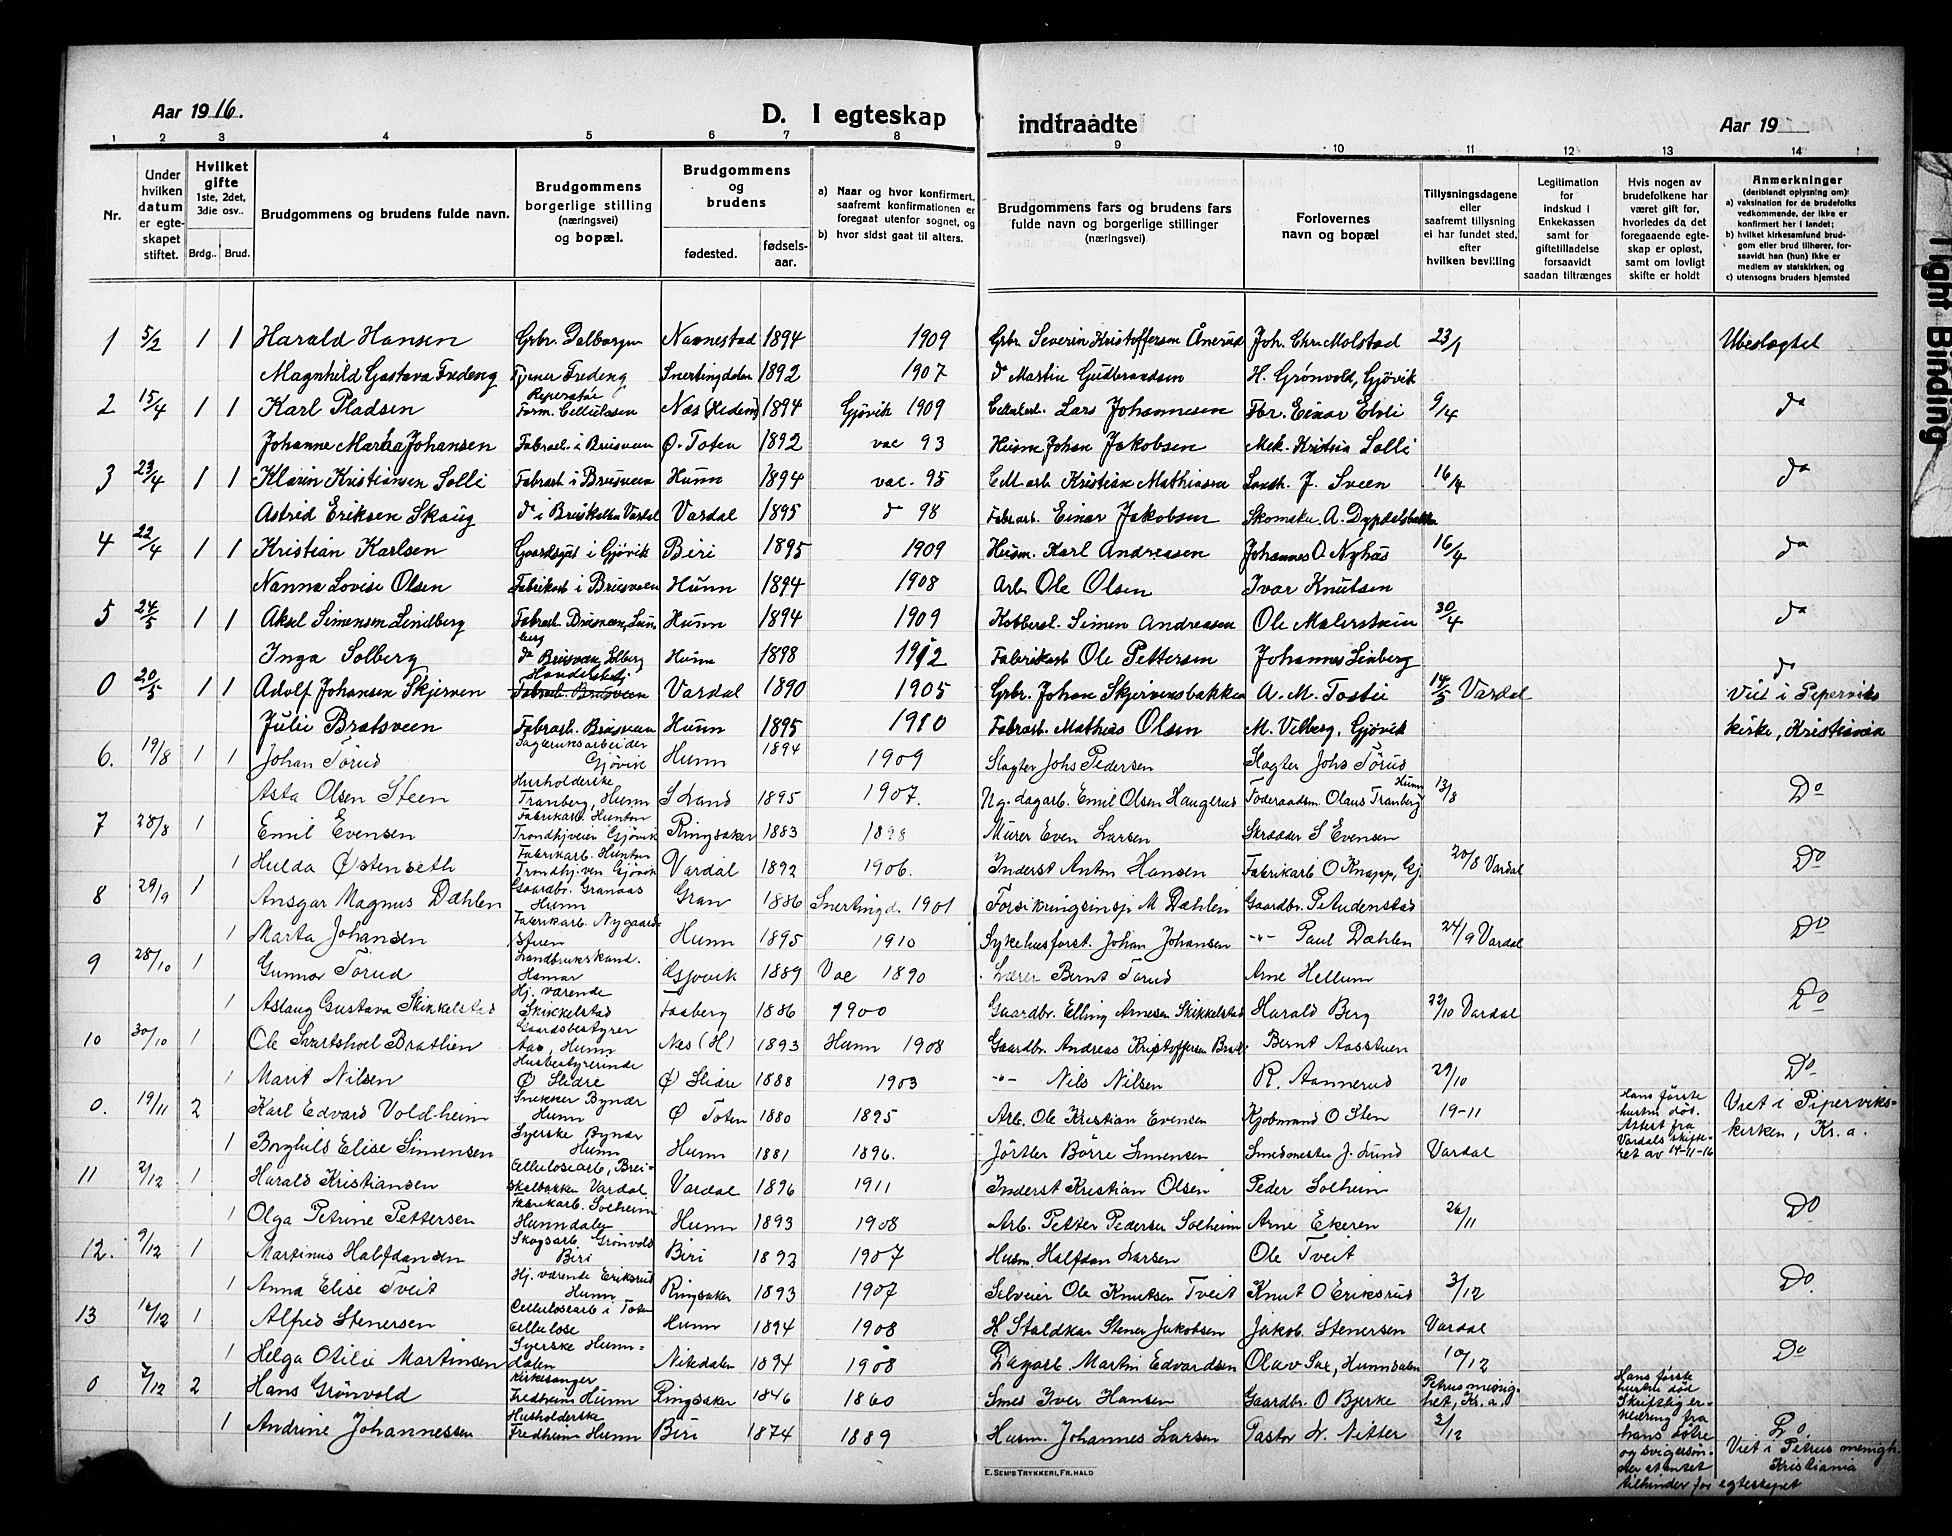 Aar 1916.
D. I egteskap indtraadte
Aar 19
1 2 3 4 5 6 7 8 9 10 11 12 13 14
Nr.
Under hvilken datum er egteskapet stiftet.
Hvilket gifte 1ste, 2det, 3die osv..
Brdg.. Brud.
Brudgommens og brudens fulde navn.
Brudgommens borgerlige stilling (næringsvei) og bopæl.
Brudgommens og brudens
fødested. fødselsaar.
a) Naar og hvor konfirmert, saafremt konfirmationen er foregaat utenfor sognet, og
b) hvor sidst gaat til alters.
Brudgommens fars og brudens fars fulde navn og borgerlige stillinger (næringsvei)
Forlovernes navn og bopæl.
Tillysningsdagene eller saafremt tillysning ei har fundet sted, efter hvilken bevilling
Legitimation for indskud i Enkekassen samt for giftetilladelse forsaavidt saadan tiltrænges
Hvis nogen av brudefolkene har været gift før, hvorledes da det foregaaende egteskap er opløst, samt om lovligt skifte er holdt
Anmerkninger (deriblandt oplysning om):
a) vaksination for de brudefolks vedkommende, der ikke er konfirmert her i landet;
b) hvilket kirkesamfund brudgom eller brud tilhører, forsaavidt han (hun) ikke er medlem av statskirken, og
c) utensogns bruders hjemsted
1 5/2 1 1 Harald Hansen Grbr. Dalborgen Nannestad 1894 1909 Grbr. Severin Kristoffersen Ånerud Joh. Chr. Molstad 23/1 Ubeslegtet
Magnhild Gustava Fredeng Tjener Fredeng Snertingdalen 1892 1907 d Martin Gudbrandsen H. Grönvold, Gjövik
2 15/4 1 1 Karl Pladsen Reperatör Form. Cellulosen Næs (Hedem) 1894 Gjövik 1909 Lars Johannesen Fbr. Einar Elvli 9/4 do
Johanne Martha Johansen Fabrarb. i Brusveen Ø. Toten 1892 vac 93 Husm Johan Jakobsen Mek. Kristian Solli
3 23/4 1 1 Klarin Kristiansen Solli Fabrarb i Brusveen Hunn 1894 vac. 95 Kristian Mathiasen J. Sveen 16/4 do
Astrid Eriksen Skaug do i Vardal Vardal 1895 d 98 Fabrarb. Einar Jakobsen Skomaker A. Dypdalsbakken
4 22/4 1 1 Kristian Karlsen Gaardsgut i Gjövik Biri 1895 1909 Husm. Karl Andreassen Johannes O. Nyhus 16/4 do
Nanna Lovise Olsen Fabrikarb i Brusveen Hunn 1894 1908 Arb. Ole Olsen Ivar Knutsen
5 24/5 1 1 Aksel Simensen Lindberg Fabrarb. Brusveen, Lindberg Hunn 1894 1909 Simen Andreasen Ole Malerstuen 30/4 do
Inga Solberg do Brusveen, Solberg Hunn 1898 1912 Fabrikarb Ole Pettersen Johannes Linberg do
0 20/5 1 1 Adolf Johansen Skjerven Fabrarb. Brusveen Vardal 1890 1905 Grbr. Johan Skjervensbakken A. M. Tostie 14/5 Vardal Viet i Peperviks
Julie Bratsveen Fabrarb. Brusveen Hunn 1895 1910 Fabrarb. Mathias Olsen M. Vilberg, Gjövik kirke, Kristiania
6. 19/8 1 1 Johan Törud Gjövik Hunn 1894 1909 Slagter Johs Pedersen Slagter Johs Törud
Asta Olsen Steen Husholderske Tranberg, Hunn S Land 1895 1907. Ng. dagarb. Emil Olsen Haugerud Föderaadsm Olaus Tranberg Hunn 13/8 Do
7 28/8 1 Emil Evensen Fabrikarb. Hunton Trondhjveien Gjövik Ringsaker 1883 1898 Murer Even Larsen Skrædder S Evensen
1 Hulda Østenseth Fabrikarb. Hunton Trondhj.ven Gjövik Vardal 1892 1906. Inderst Anton Hansen Fabrikarb O Knapp, Gj. 20/8 Vardal Do
8 29/9 1 Ansgar Magnus Dæhlen Gaardbr. Granaas Hunn Gran 1886 Snertingd. 1901 Forsikringsinsp M Dæhlen Gaardbr. P. Audenstad
1 Marta Johansen Fabrikarb. Nygaardstuen Hunn 1895 1910 Sykehusforst. Johan Johansen -"- Paul Dæhlen 24/9 Vardal Do
9 28/10 1 Gunnar Törud Landbrukskand. Hamar Gjövik 1889 Vac 1890 Lærer Bernt Törud Arne Hellum
1 Aslaug Gustava Skikkelstad Hj. værende Skikkelstad Faaberg 1886 1900 Gaardbr. Elling Arnesen Skikkelstad Harald Berg 22/10 Vardal Do
10 30/10 1 Ole Svartshoel Bratlien Gaardsbestyrer Aas, Hunn Næs (H) 1893 Hunn 1908 Gaardbr. Andreas Kristoffersen Bratl. Bernt Aasstuen
1 Marit Nilsen Husbestyrerinde Ø Slidre Ø Slidre 1888 1903 -"- Nils Nilsen R. Aannerud 29/10 Do
0. 19/11 2 Karl Edvard Voldheim Snekker Bynær Hunn Ø Toten 1880 1895 Arb. Ole Kristian Evensen Kjøbmand O Sten 19-11 Hans første hustru död. Attest fra Vardals skifteret av 14-11-16 Viet i Piperviks-
1 Borghild Elise Simensen Syerske Bynær Hunn Hunn 1881 1896. Börre Simensen Smedmester J. Lund Vardal kirken, Kr.a.
11 2/12 1 Harald Kristiansen Cellulosearb, Breiskalbakken Vardal Vardal 1896 1911 Inderst Kristian Olsen Peder Solheim
1 Olga Petrine Pettersen Fabrikarb. Solheim Hunndalen Hunn 1893 1908 Arb. Petter Pedersen Solheim Arne Ekeren 26/11 Do
12. 9/12 1 Martinus Halfdansen Skogsarb. Grönvold Biri Biri 1892 1907 Husm. Halfdan Larsen Ole Tveit
1 Anna Elise Tveit Hj. værende Eriksrud Hunn Ringsaker 1893 1907 Selveier Ole Knutsen Tveit Knut O Eriksrud 3/12 Do.
13 16/12 1 Alfred Stenersen Cellulosearb i Toten Cellulose Hunn 1894 1908 Stener Jakobsen Jakob Stenersen Vardal
1 Helga Otilie Martinsen Syerske Hunndalen Nitedalen 1894 1908 Dagarb. Martin Edvardsen Olav Sæ, Hunndalen 10/12 Do
0 7/12 2 Hans Grönvold Kirkesanger Fredheim Hunn Ringsaker 1846 1860 Smed Iver Hansen Gaardbr. O Bjerke Petrus menighet, Kr.a. Hans første hustru død Skriftlig erklæring fra hans døtre og svigersønner at intet til hinder for egteskapet
1 Andrine Johannessen Husholderske Fredheim Hunn Biri 1874 1889 Husm. Johannes Larsen Pastor L. Nitter 3/12 Do. Viet i Petrus menigh. Kristiania
E. SEM'S TRYKKERI, FR.HALD
Tight Binding